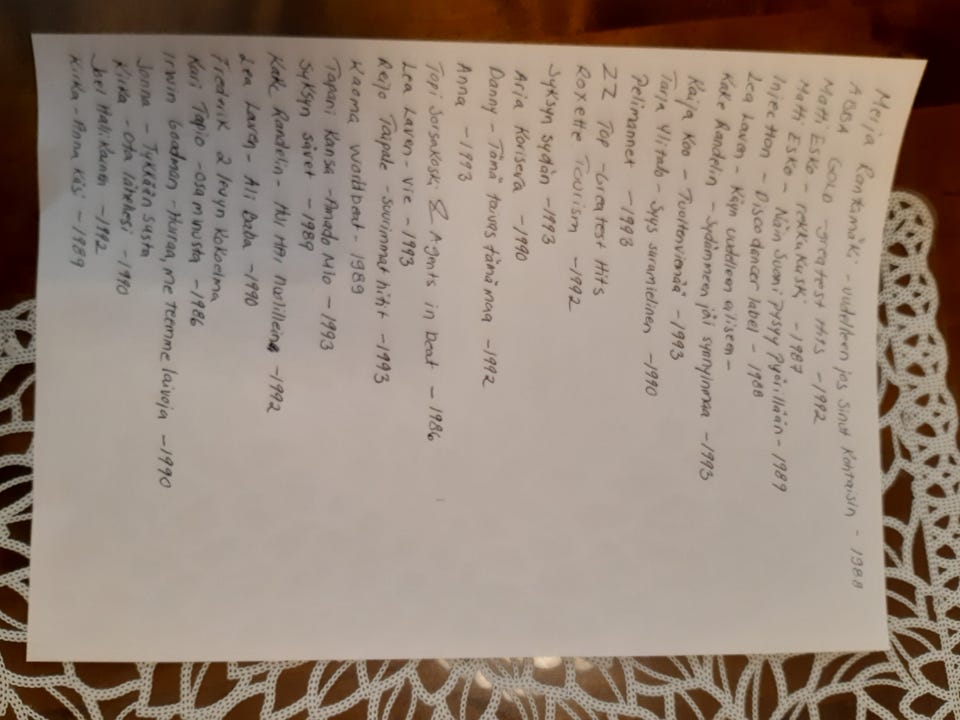 Meija Rantamäki - uudelleen jos sinut kohtaisin - 1988
ABBA GOLD - greatest Hits - 1992
Matti Esko - rekkakuski - 1987
Matti Esko - Näin Suomi pysyy pyörillään - 1989
Injection - Disco dancer label - 1988
Lea Laven - Käyn uudelleen aliseen -
Kake Randelin - Sydämmeen jäi syyyinmaa - 1993
Kaija Koo - Tuulten viemää - 1993
Tarja Ylitalo - Syys suramielinen - 1990
Pelimannet - 1993
ZZ Top - Greatest Hits
Roxette Tourism - 1992
Syksyn sydän - 1993
Arja Koriseva - 1990
Danny - Tämä taivas tämä maa - 1992
Anna - 1993
Topi Sorsakoski & Agents in beat - 1986
Lea Laven - Vie - 1993
Reijo Taipale - Suurimmat hitit - 1993
Kaoma Worldbeat - 1989
Tapani Kansa - Amado Mio - 1993
Syksyn sävet - 1989
Kake Randelin - Hui Hai Huolilleine - 1992
Lea Laven - Ali baba - 1990
Frederik 2 levyn kokoelma
Kari Tapio - osa minusta - 1986
Irwin Goodman - Hurraa, me teemme laivoja - 1990
Jonna - Tykkään susta
Kirka - Ota lähellesi - 1990
Joel Hallikainen - 1992
Kirka - Anna käsi - 1989